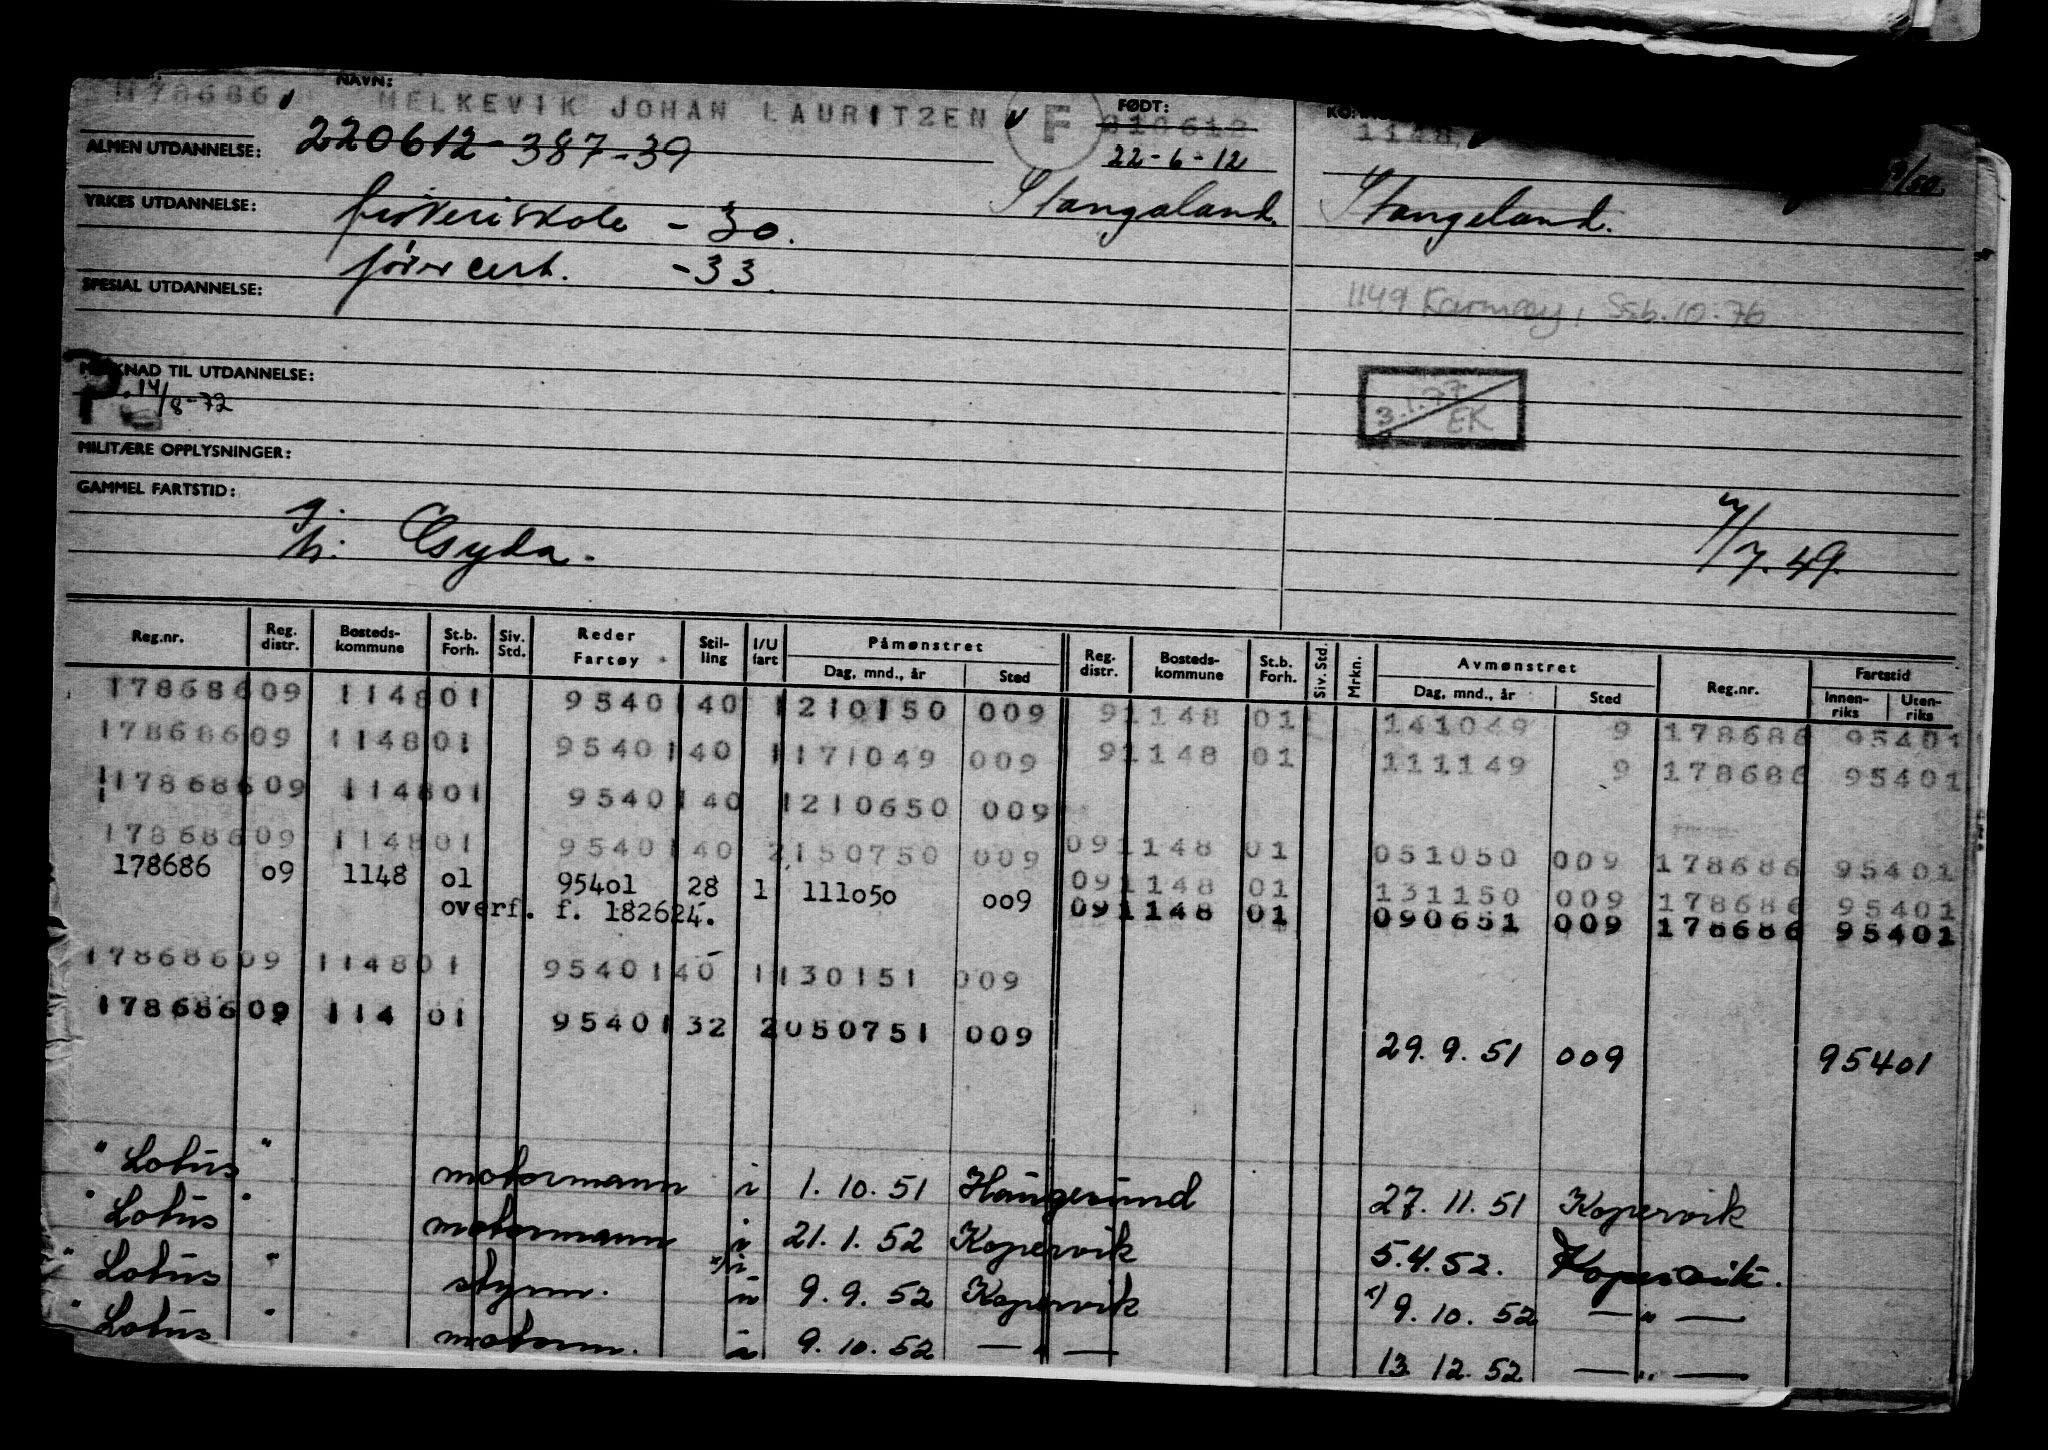 178686 NAVN: MELKEVIK JOHAN LAURITZEN F FØDT: 310612 1148
ALMEN UTDANNELSE: 220612-387-39 22-6-12
YRKES UTDANNELSE: fiskeriskole - 30. Stangaland. Stangeland.
förer cert. - 33.
SPESIAL UTDANNELSE: 1149 Karmøy, Ssb. 10.76
MERKNAD TIL UTDANNELSE:
P. 14/8-72 3.1.77 EK
MILITÆRE OPPLYSNINGER:
GAMMEL FARTSTID:
Gyda. 7. 49.
Reg.nr. Reg. distr. Bosteds-kommune St.b. Forh. Siv. Std. Reder Fartøy Stil-ling I/U fart Påmønstret Dag, mnd., år Sted Reg. distr. Bosteds-kommune St.b. Forh. Siv. Std. Mrkn. Avmønstret Dag, mnd., år Sted Reg.nr. Fartstid Innen-riks Uten-riks
178686 09 1148 01 95401 40 1 210150 009 9 1148 01 141049 9 178686 95401
178686 09 1148 01 95401 40 1 171049 009 9 1148 01 111149 9 178686 95401
178686 09 1148 01 95401 40 1 210650 009
178686 09 1148 01 95401 40 2 150750 009 09 1148 01 051050 009 178686 95401
178686 o9 1148 o1 954o1 28 1 111o50 oo9 09 1148 01 131150 009 178686 95401
overf. f. 182624. 09 1148 01 090651 009 178686 95401
178686 09 1148 01 95401 40 1 130151 009
178686 09 114 01 95401 32 2 050751 009 29. 9. 51 009 95401
"Lotus" motormann i 1. 10. 51 Haugesund 27. 11. 51 Kopervik
"Lotus" motormann i 21. 1. 52 Kopervik 5.4.52. Kopervik.
"Lotus" styrm. x) i u 9. 9. 52 Kopervik x) 9. 10. 52 — " —
"Lotus" motorm. i 9. 10. 52 — " — 13. 12. 52 — " —